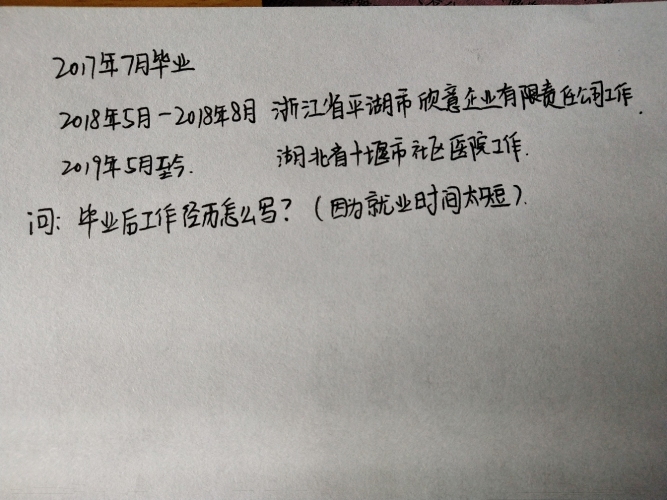 2017年7月毕业
2018年5月-2018年8月 浙江省平湖市欣意企业有限责任公司工作.
2019年5月至今. 湖北省十堰市社区医院工作.
问: 毕业后工作经历怎么写? (因为就业时间太短).